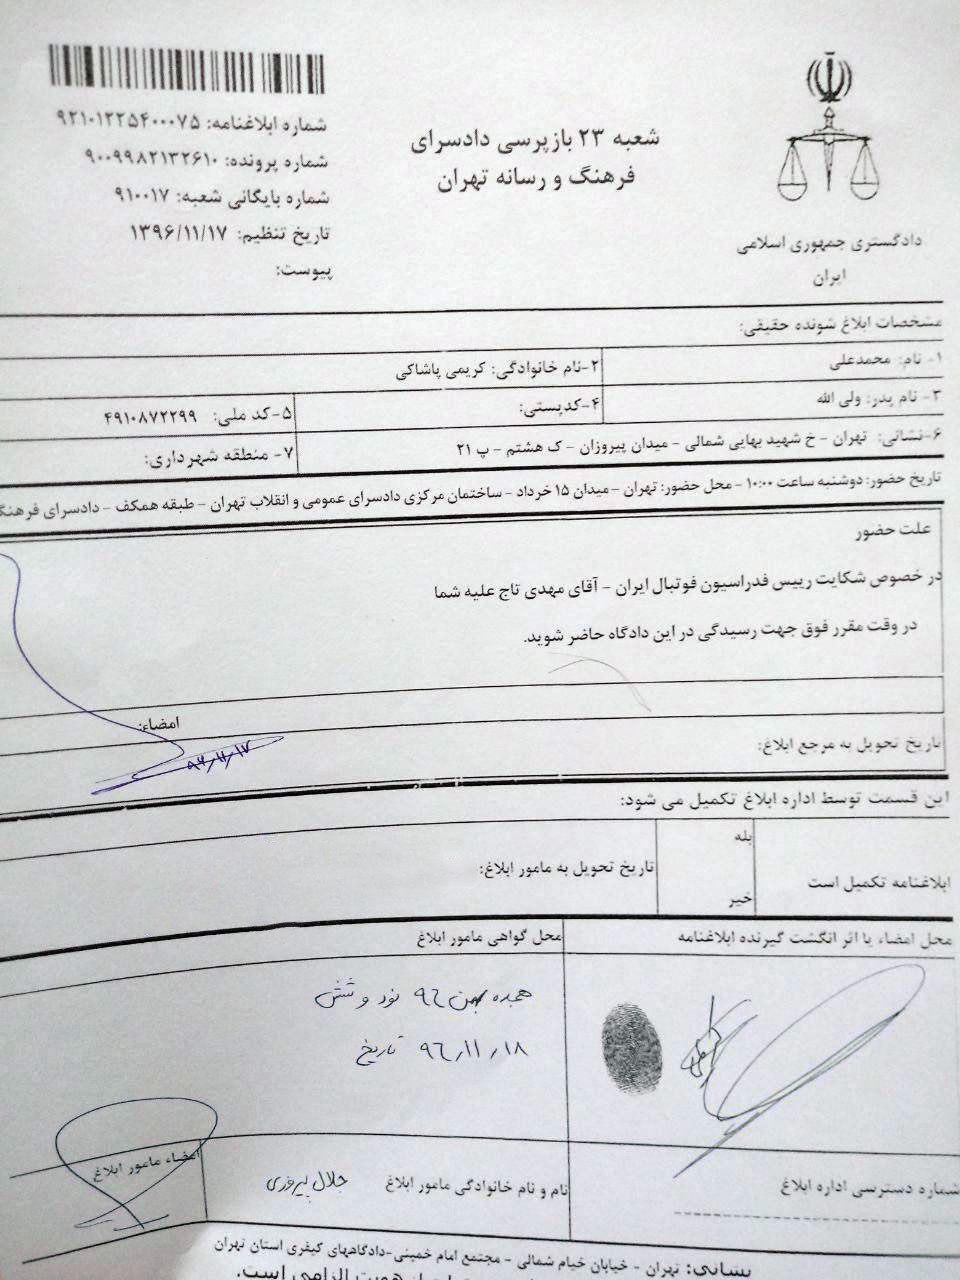 شماره ابلاغنامه: ۹۲۱۰۱۲۲۵۴۰۰۰۷۵
شماره پرونده: ۹۰۰۹۹۸۲۱۳۲۶۱۰
شماره بایگانی شعبه: ۹۱۰۰۱۷
تاریخ تنظیم: ۱۳۹۶/۱۱/۱۷
پیوست:
شعبه ۲۳ بازپرسی دادسرای
فرهنگ و رسانه تهران
دادگستری جمهوری اسلامی
ایران
مشخصات ابلاغ شونده حقیقی:
۱- نام: محمدعلی
۲-نام خانوادگی: کریمی پاشاکی
۳- نام پدر: ولی الله
۴-کدپستی:
۵-کد ملی: ۴۹۱۰۸۷۲۲۹۹
۶-نشانی: تهران - خ شهید بهایی شمالی - میدان پیروزان - ک هشتم - پ ۲۱
۷- منطقه شهرداری:
تاریخ حضور: دوشنبه ساعت ۱۰:۰۰ - محل حضور: تهران - میدان ۱۵ خرداد - ساختمان مرکزی دادسرای عمومی و انقلاب تهران - طبقه همکف - دادسرای فرهنگ
علت حضور
در خصوص شکایت رییس فدراسیون فوتبال ایران - آقای مهدی تاج علیه شما
در وقت مقرر فوق جهت رسیدگی در این دادگاه حاضر شوید.
امضاء:
۹۶/۱۱/۱۷
تاریخ تحویل به مرجع ابلاغ:
این قسمت توسط اداره ابلاغ تکمیل می شود:
ابلاغنامه تکمیل است
بله
خیر
تاریخ تحویل به مامور ابلاغ:
محل امضاء یا اثر انگشت گیرنده ابلاغنامه
محل گواهی مامور ابلاغ
هجده بهمن ۹۶ نود و شش
۹۶/۱۱/۱۸ تاریخ
شماره دسترسی اداره ابلاغ
نام و نام خانوادگی مامور ابلاغ جلال پیروزی
امضاء مامور ابلاغ
نشانی: تهران - خیابان خیام شمالی - مجتمع امام خمینی-دادگاههای کیفری استان تهران
هویت الزامی است.